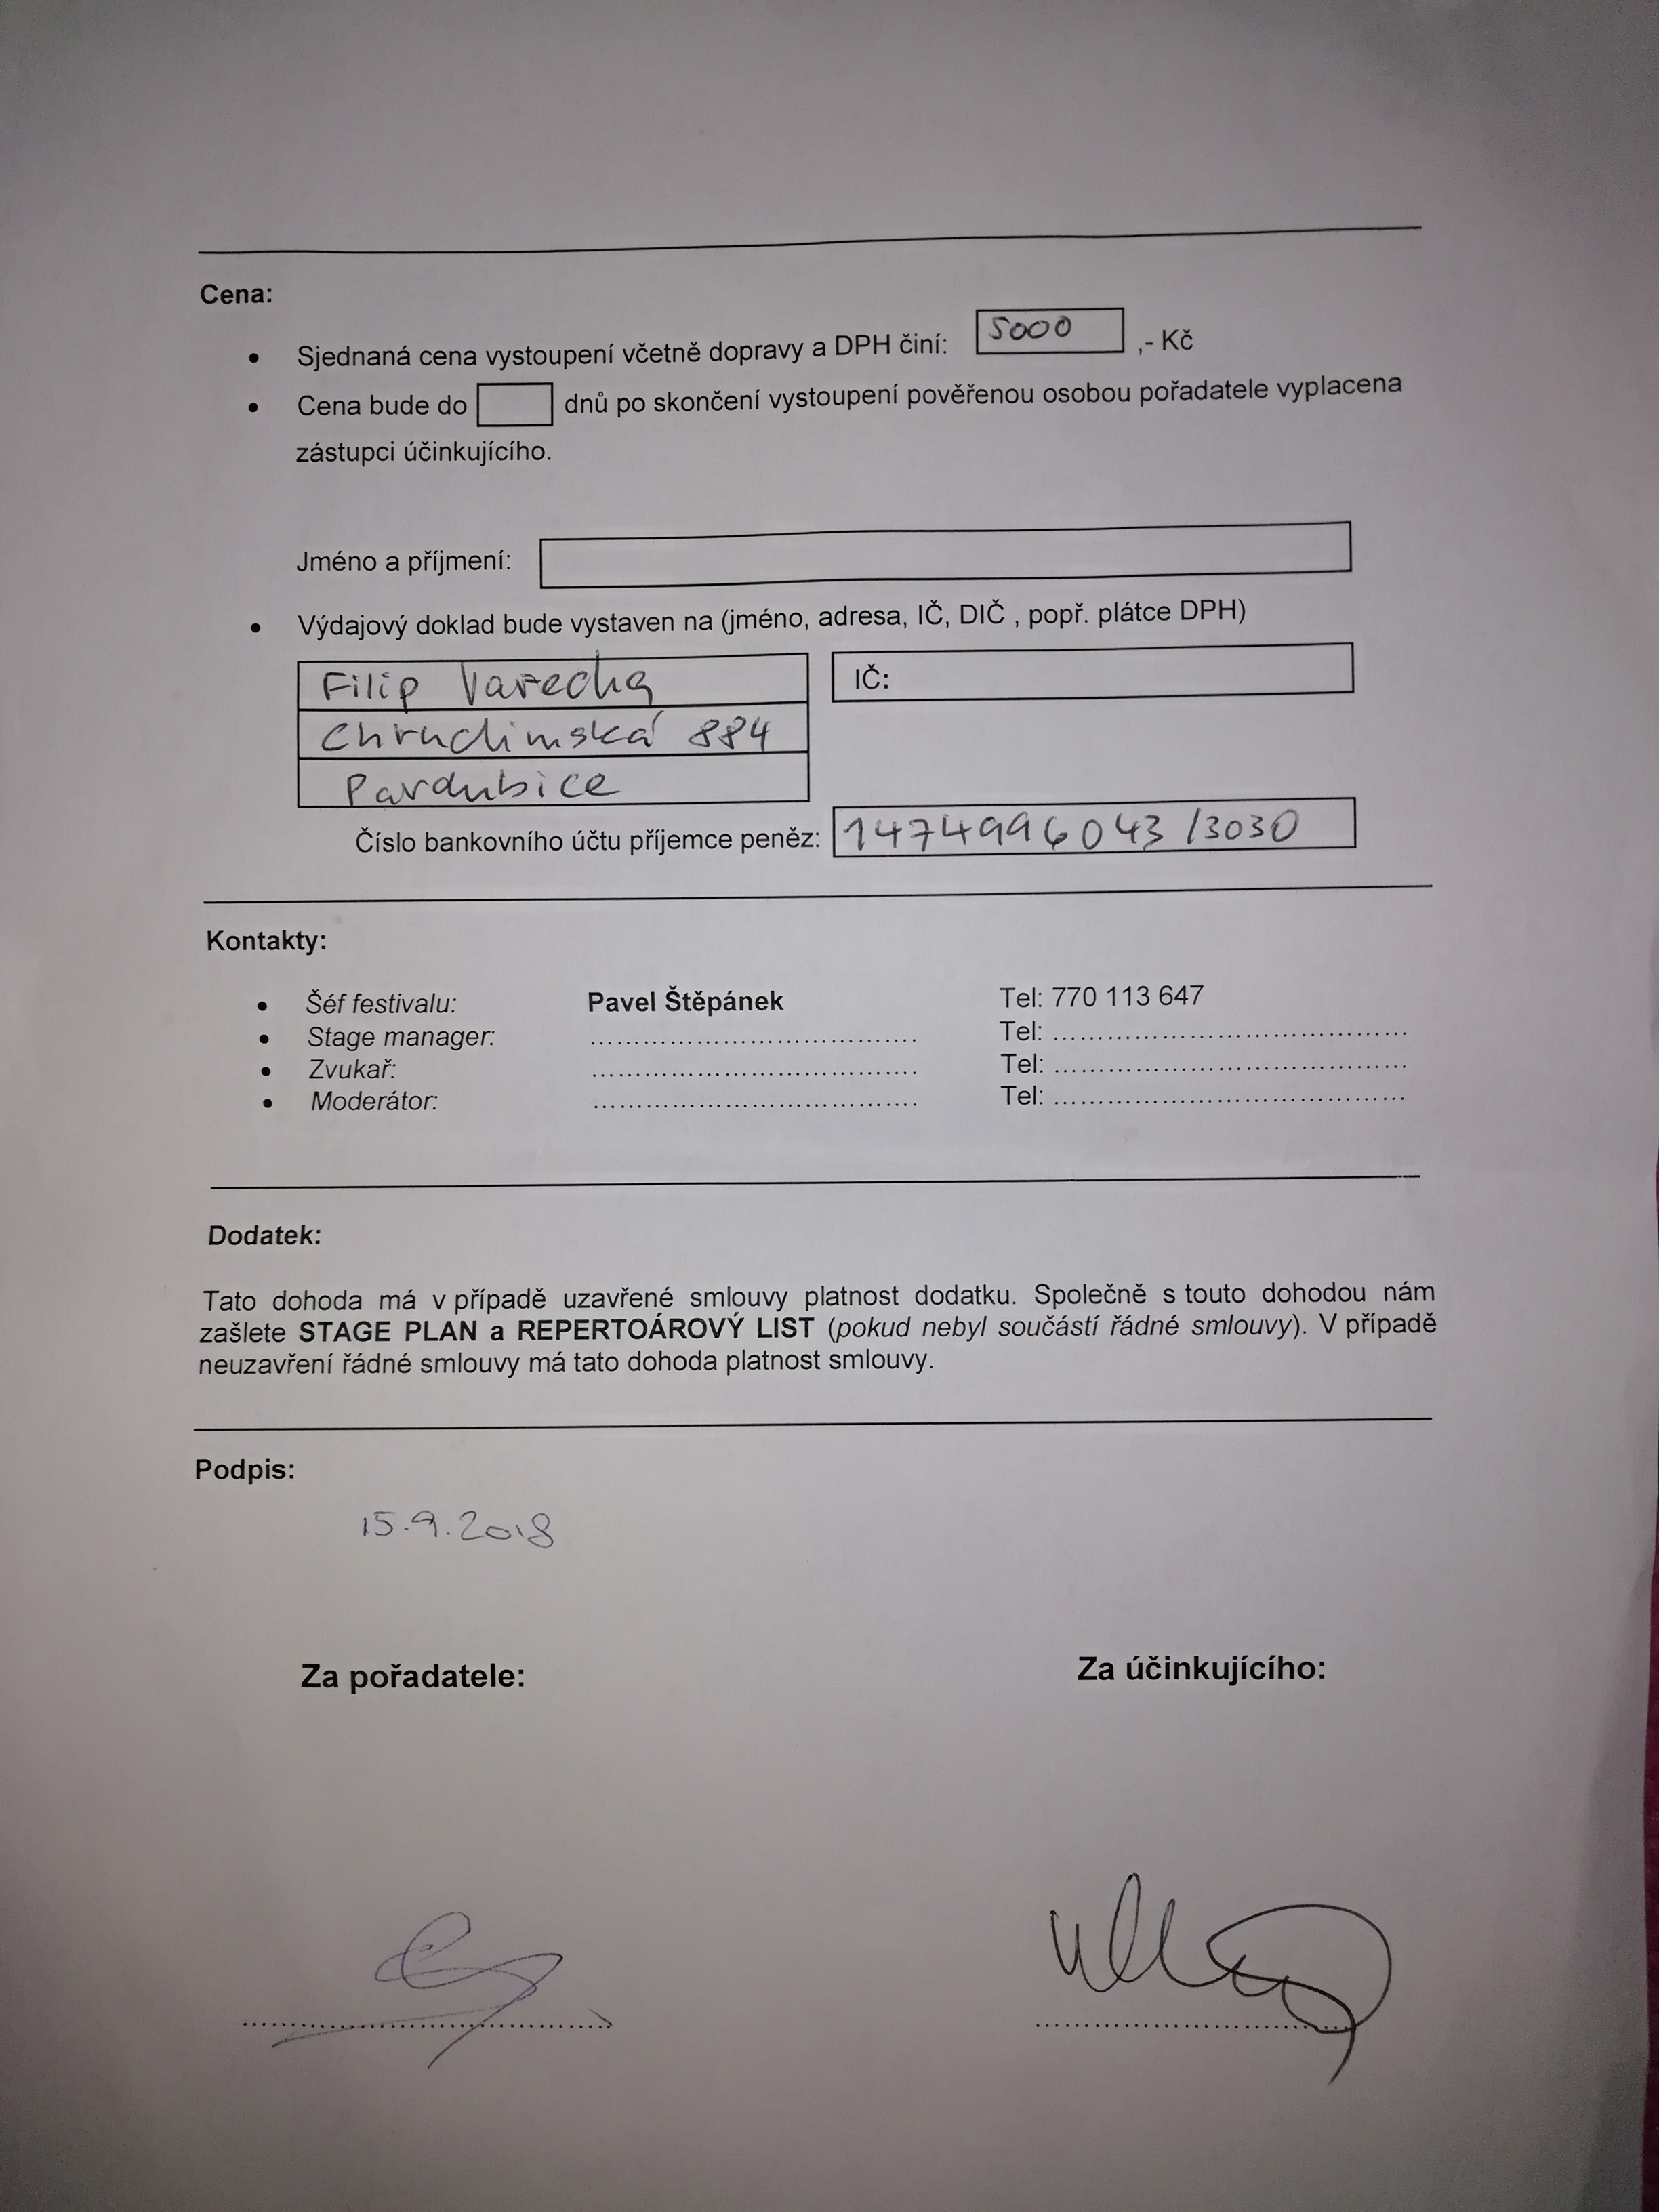 Cena:
• Sjednaná cena vystoupení včetně dopravy a DPH činí: 5000 ,- Kč
• Cena bude do dnů po skončení vystoupení pověřenou osobou pořadatele vyplacena
zástupci účinkujícího.
Jméno a příjmení:
• Výdajový doklad bude vystaven na (jméno, adresa, IČ, DIČ , popř. plátce DPH)
Filip Varecha IČ:
Chrudimská 884
Pardubice
Číslo bankovního účtu příjemce peněz: 14749996043 /3030
Kontakty:
• Šéf festivalu: Pavel Štěpánek Tel: 770 113 647
• Stage manager: ........................................ Tel: ........................................
• Zvukař: ........................................ Tel: ........................................
• Moderátor: ........................................ Tel: ........................................
Dodatek:
Tato dohoda má v případě uzavřené smlouvy platnost dodatku. Společně s touto dohodou nám
zašlete STAGE PLAN a REPERTOÁROVÝ LIST (pokud nebyl součástí řádné smlouvy). V případě
neuzavření řádné smlouvy má tato dohoda platnost smlouvy.
Podpis:
15.9.2018
Za pořadatele: Za účinkujícího: